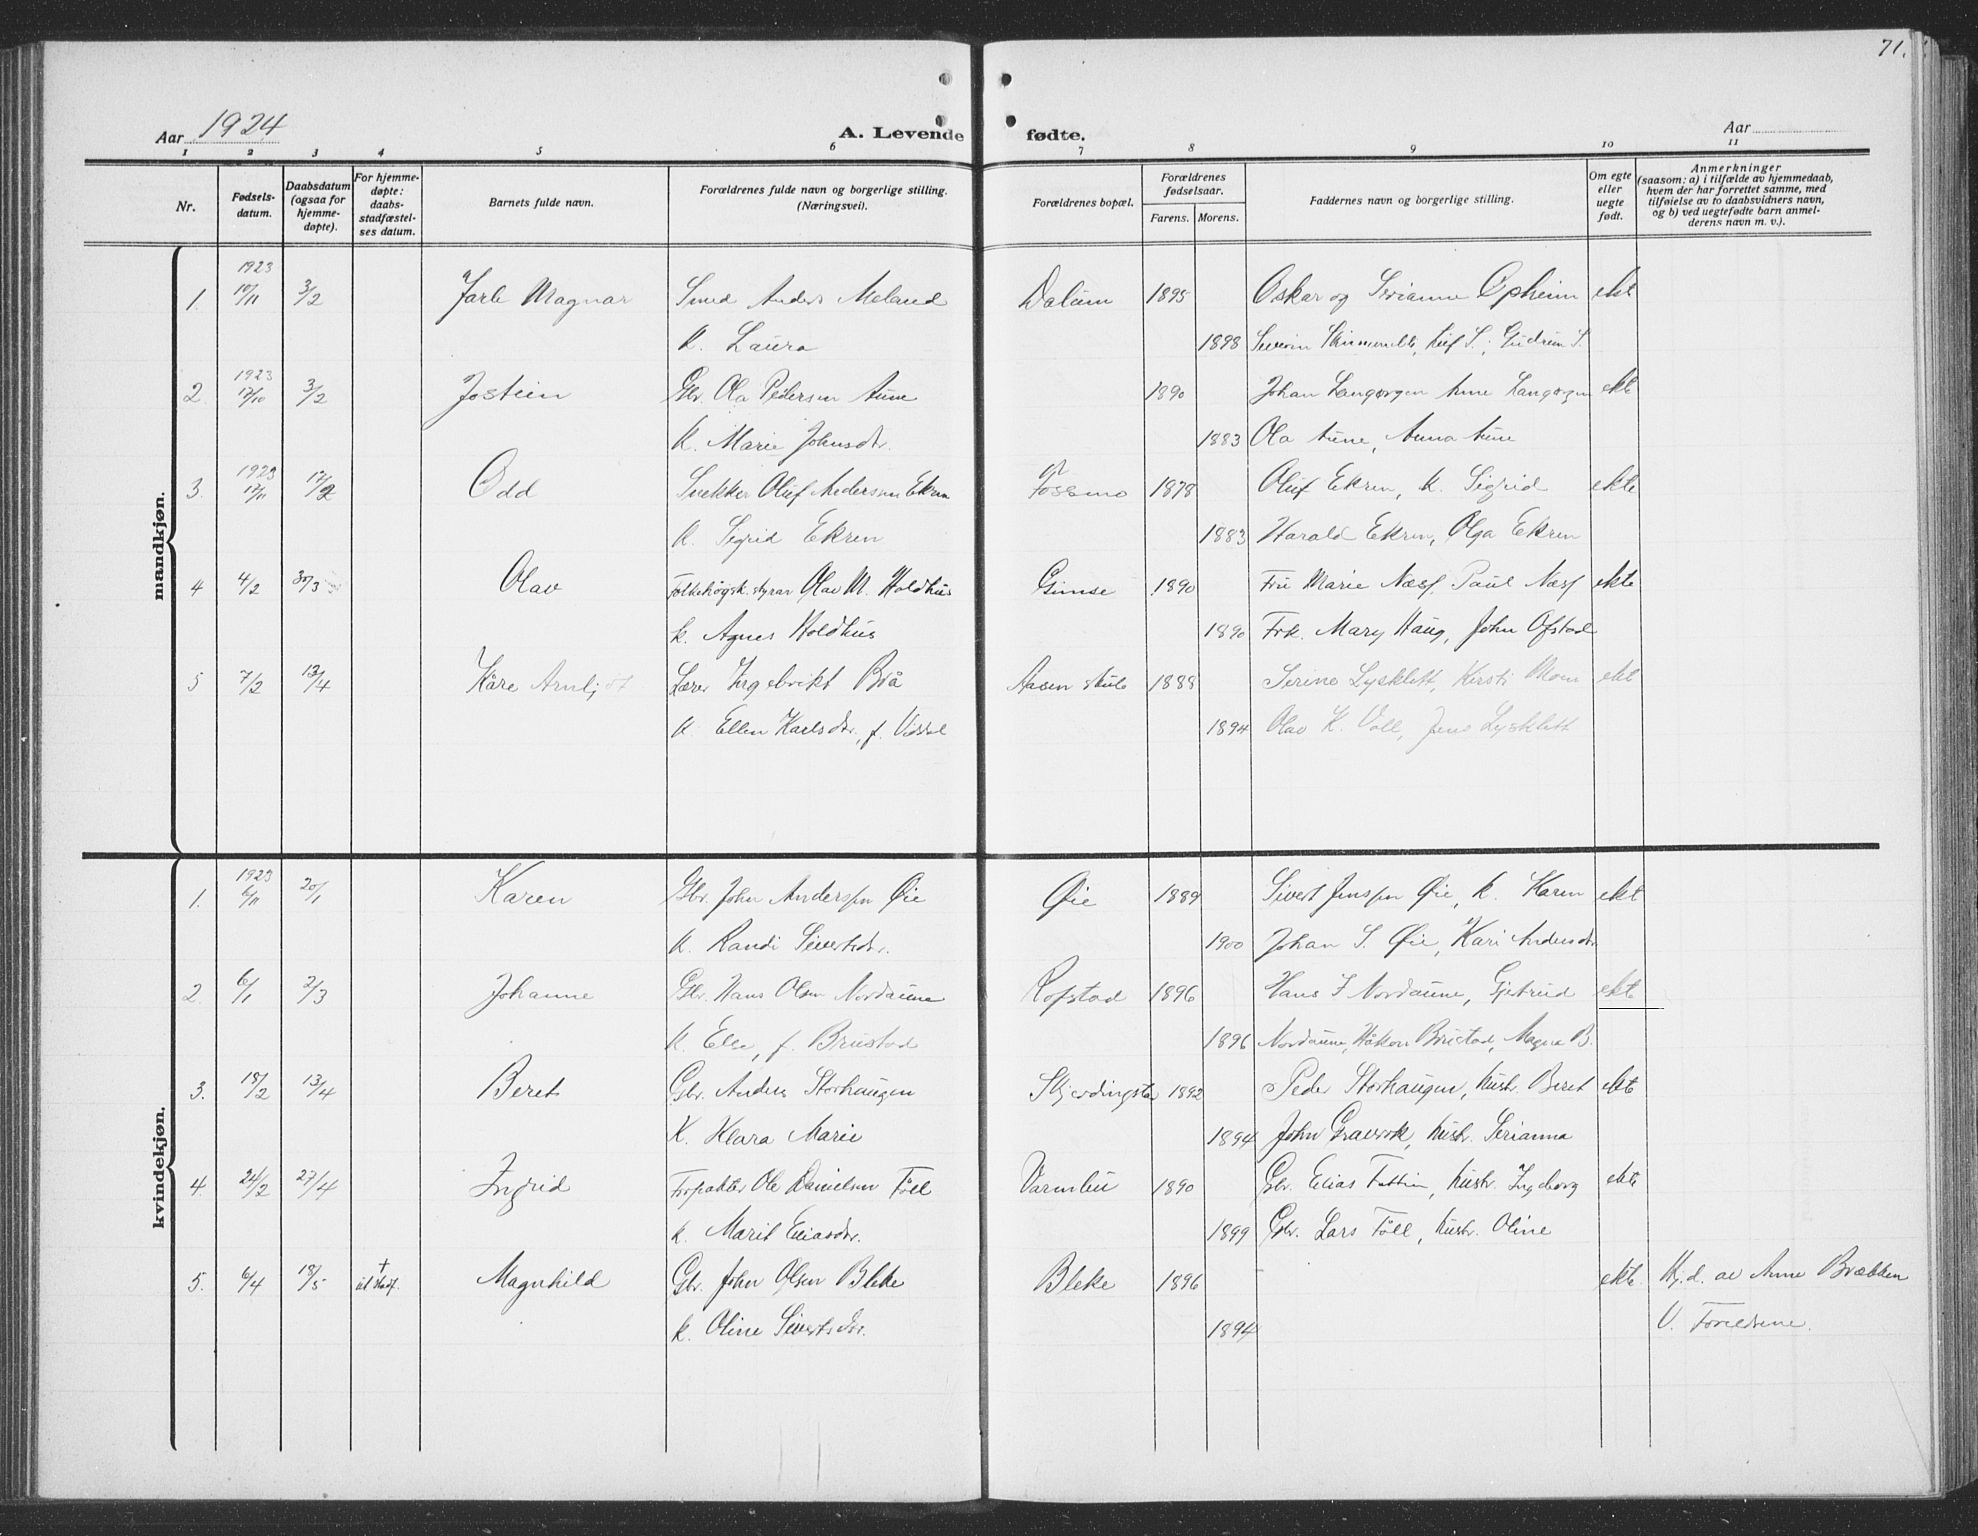 71.
Aar 1924 A. Levende fødte. Aar
1 2 3 4 5 6 7 8 9 10 11
Nr. Fødsels-datum. Daabsdatum (ogsaa for hjemme-døpte). For hjemme-døpte: daabs-stadfæstel-ses datum. Barnets fulde navn. Forældrenes fulde navn og borgerlige stilling. (Næringsvei). Forældrenes bopæl. Forældrenes fødselsaar. Farens. Morens. Faddernes navn og borgerlige stilling. Om egte eller uegte født. Anmerkninger (saasom: a) i tilfælde av hjemmedaab, hvem der har forrettet samme, med tilføielse av to daabsvidners navn, og b) ved uegtefødte barn anmel-derens navn m. v.).
mandkjøn.
1923
1. 10/11 3/2 Jarle Magnar Smed Anders Meland Dalum 1895 Oskar og Serianne Opheim ekt
K. Laura 1898 Severin Leif S.; Gudrun S.
1923
2. 12/10 3/2 Jostein Gbr. Ola Pedersen Aune 1890 Johan Langørgen Anne Langørgen ekte
K. Marie Johnsdr. 1883 Ola Aune, Anna Aune
1923
3. 17/11 17/2 Odd Snekker Oluf Andersen Ekren Fossmo 1878 Oluf Ekren, K. Sigrid ekte
K. Sigrid Ekren 1883 Harald Ekren, Olga Ekren
4 4/2 30/3 Olav Folkehøgsk.styrar Olav M. Holdhus Gimse 1890 Fru Marie Næss, Paul Næss ekte
k. Agnes Holdhus 1890 Frk. Mary Haug, John Ofstad
5 7/2 13/4 Kåre Arnljot Lærer Ingebrikt Brå Aasen skule 1888 Serine Lysklett, Kirsti Moen ekt
K. Ellen Karlsdr., f. 1894 Olav K. Voll, Jens Lysklett
kvindekjøn.
1923
1. 6/11 20/1 Karen Gbr. John Anderssen Øie Øie 1889 Sivert Jenssen Øie, k. Karen ekt
K. Randi Sivertsdr. 1900 Johan S. Øie, Kari Andersdr
2. 6/1 2/3 Johanne Gbr. Hans Olsen Nordaune Rofstad 1896 Hans J Nordaune, Gjetrud ekte
K. Else, f. Brustad 1896 Nordaune, Håkon Brustad, Magna B.
3. 18/2 13/4 Beret Gbr. Anders Storhaugen Skjerdingstad 1892 Peder Storhaugen, hustr. Beret ekte
K. Klara Marie 1894 John Gravrok, hustr. Serianna
4. 24/2 27/4 Ingrid Forpakter Ole Danielsen Foll Varmbu 1890 Gbr. Elias Fottin, hustr. Ingeborg ekte
k. Marit Eliasdr. 1899 Gbr. Lars Foll, hustr. Oline
5. 6/4 18/5 + ut. stadf. Magnhild Gbr. John Olsen Bleke Bleke 1896 ekte. Hj.d. av Anne Brækken
k. Oline Sivertsdr. 1894 V. Foreldrene.